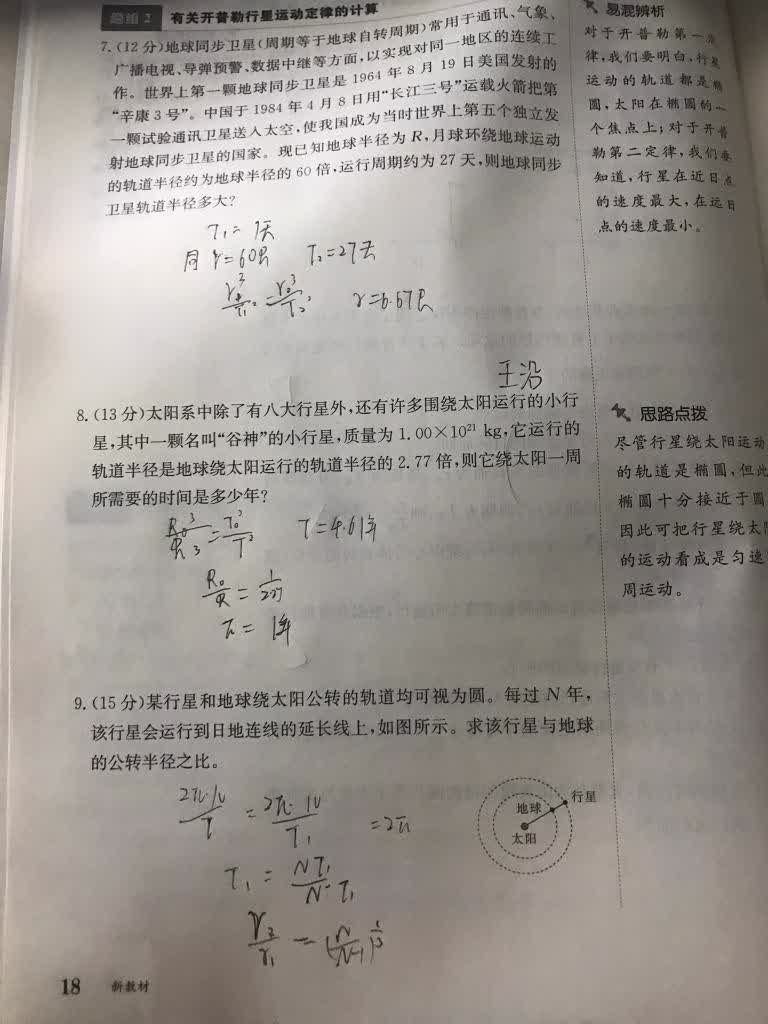 题组2 有关开普勒行星运动定律的计算
7.(12分)地球同步卫星(周期等于地球自转周期)常用于通讯、气象、
广播电视、导弹预警、数据中继等方面,以实现对同一地区的连续工
作。世界上第一颗地球同步卫星是1964年8月19日美国发射的
“辛康3号”。中国于1984年4月8日用“长江三号”运载火箭把第
一颗试验通讯卫星送入太空,使我国成为当时世界上第五个独立发
射地球同步卫星的国家。现已知地球半径为R,月球环绕地球运动
的轨道半径约为地球半径的60倍,运行周期约为27天,则地球同步
卫星轨道半径多大?
T₁=1天
同 r=60R T₂=27天
r=6.67R
王沿
8.(13分)太阳系中除了有八大行星外,还有许多围绕太阳运行的小行
星,其中一颗名叫“谷神”的小行星,质量为1.00×10²¹ kg,它运行的
轨道半径是地球绕太阳运行的轨道半径的2.77倍,则它绕太阳一周
所需要的时间是多少年?
T=4.61年
=1年
9.(15分)某行星和地球绕太阳公转的轨道均可视为圆。每过N年,
该行星会运行到日地连线的延长线上,如图所示。求该行星与地球
的公转半径之比。
行星
地球
太阳
2π·N/T = 2π·N/T₁ =2π
18 新教材
易混辨析
对于开普勒第一
律,我们要明白,行星
运动的轨道都是椭
圆,太阳在椭圆的一
个焦点上;对于开普
勒第二定律,我们要
知道,行星在近日点
的速度最大,在远日
点的速度最小。
思路点拨
尽管行星绕太阳运动
的轨道是椭圆,但此
椭圆十分接近于圆
因此可把行星绕太阳
的运动看成是匀速
周运动。